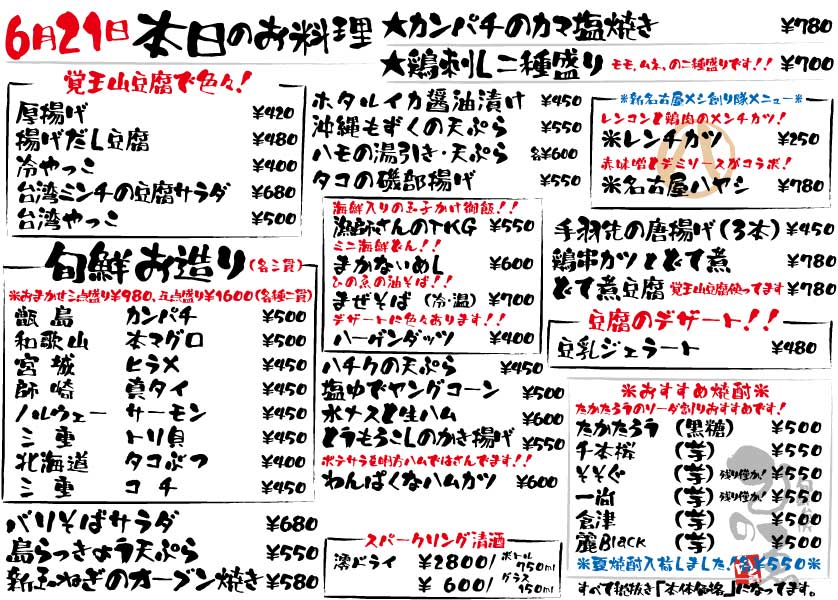 6月21日 本日のお料理
★カンパチのカマ塩焼き ¥780
★鶏刺し二種盛り モモ、ムネ、の二種盛りです!! ¥700
覚王山豆腐で色々!
厚揚げ ¥420
揚げだし豆腐 ¥480
冷やっこ ¥400
台湾ミンチの豆腐サラダ ¥680
台湾やっこ ¥500
旬鮮お造り(各二貫)
※おまかせ三点盛り¥980、五点盛り¥1600(各種二貫)
甑島 カンパチ ¥500
和歌山 本マグロ ¥500
宮城 ヒラメ ¥450
師崎 真タイ ¥450
ノルウェー サーモン ¥450
三重 トリ貝 ¥450
北海道 タコぶつ ¥400
三重 コチ ¥450
バリそばサラダ ¥680
島らっきょう天ぷら ¥550
新玉ねぎのオーブン焼き ¥580
ホタルイカ醤油漬け ¥450
沖縄もずくの天ぷら ¥550
ハモの湯引き・天ぷら 各¥600
タコの磯部揚げ ¥550
海鮮入りの玉子かけ御飯!!
漁師さんのTKG ¥550
ミニ海鮮どん!!
まかないめし ¥600
ひのゑの油そば!!
まぜそば (冷・温) ¥700
デザートに色々あります!!
ハーゲンダッツ ¥400
ハチクの天ぷら ¥450
塩ゆでヤングコーン ¥500
水ナスと生ハム ¥600
とうもろこしのかき揚げ ¥550
ポテサラを味方ハムではさんでます!!
わんぱくなハムカツ ¥600
スパークリング清酒
澪ドライ ¥2800/ボトル750ml
¥600/グラス150ml
※新名古屋メシ創り隊メニュー※
レンコンと鶏肉のメンチカツ!
※レンチカツ ¥250
赤味噌とデミソースがコラボ!
※名古屋ハヤシ ¥780
手羽先の唐揚げ(3本) ¥450
鶏串カツとどて煮 ¥780
どて煮豆腐 覚王山豆腐使ってます ¥780
豆腐のデザート!!
豆乳ジェラート ¥480
※おすすめ焼酎※
たかたろうのソーダ割りおすすめです!
たかたろう (黒糖) ¥500
千本桜 (芋) ¥500
そそぐ (芋) 残り僅か! ¥550
一尚 (芋) 残り僅か! ¥500
倉津 (芋) ¥500
麗Black (芋) ¥500
※夏焼酎入荷しました!各¥550※
すべて税抜き「本体価格」になってます。